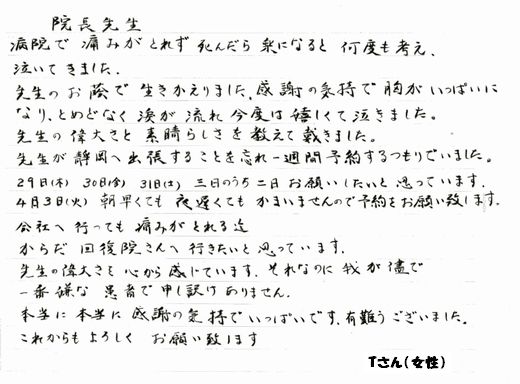 院長先生
病院で痛みがとれず死んだら楽になると何度も考え、
泣いてきました。
先生のお陰で生きかえりました。感謝の気持で胸がいっぱいに
なり、とめどなく涙が流れ今度は嬉しくて泣きました。
先生の偉大さと素晴らしさを教えて戴きました。
先生が静岡へ出張することを忘れ一週間予約するつもりでいました。
29日(木) 30日(金) 31日(土) 三日のうち二日お願いしたいと思っています。
4月3日(火) 朝早くても夜遅くてもかまいませんので予約をお願い致します。
公社へ行っても痛みがとれる迄
からだ回復院さんへ行きたいと思っています。
先生の偉大さを心から感じています。それなのに我が儘で
一番嫌な患者で申し訳ありません。
本当に本当に感謝の気持でいっぱいです。有難うございました。
これからもよろしくお願い致します
Tさん(女性)